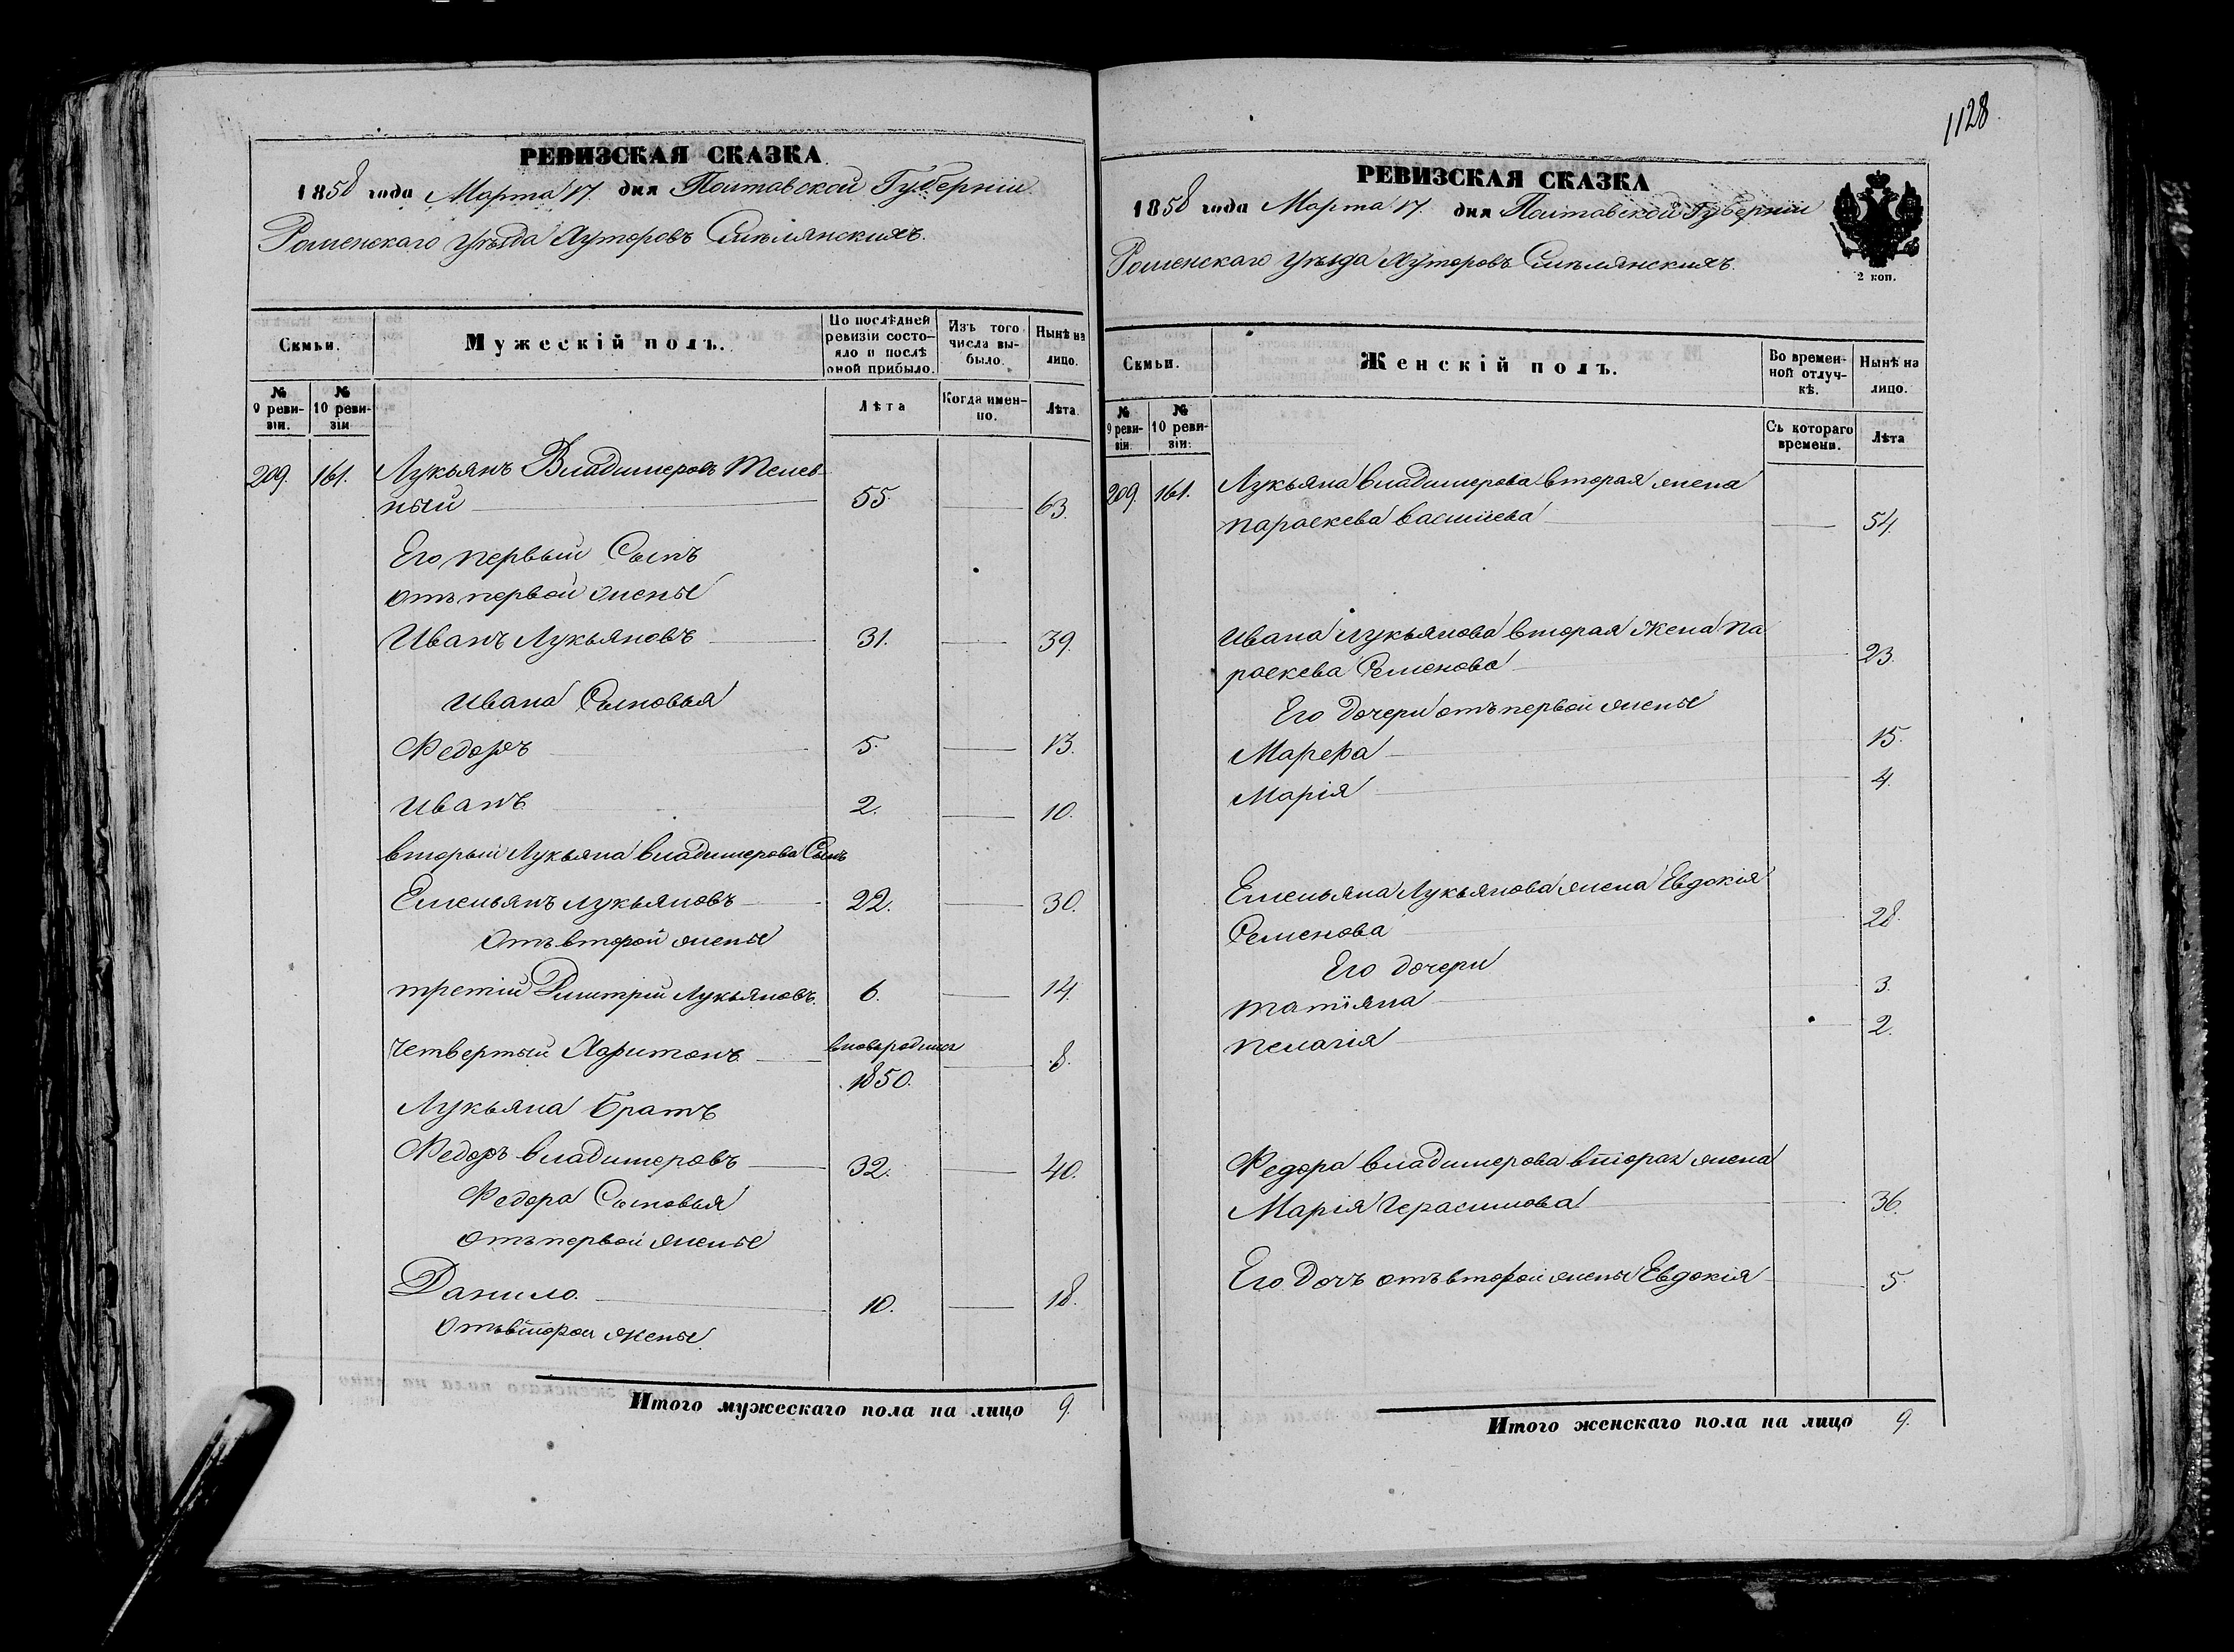 1128
РЕВИЗСКАЯ СКАЗКА
1858 года Марта 17. дня Полтавской Губерніи
Роменскаго Уѣзда Хуторовъ Смѣлянскихъ.
Семьи.
Мужескій полъ.
По послѣдней ревизіи состояло и послѣ оной прибыло.
Изъ того числа выбыло.
Нынѣ на лицо.
№ 9 ревизіи.
№ 10 ревизіи
Лѣта
Когда именно.
Лѣта.
209. 161. Лукьянъ Владимеровъ Телев-
ный 55 63.
Его первый Сынъ
отъ первой жены
Иванъ Лукьяновъ 31. 39.
Ивана Сыновья
Федоръ 5. 13.
Иванъ 2. 10.
вторый Лукьяна Владимерова Сынъ
Емельянъ Лукьяновъ 22. 30.
Отъ второй жены
третій Дмитрій Лукьяновъ. 6. 14.
Четвертый Харитонъ вновьродился 8.
1850.
Лукьяна Братъ
Федоръ Владимеровъ 32. 40.
Федора Сыновья
отъ первой жены
Данило. 10. 18.
Отъ второй жены.
Итого мужескаго пола на лицо 9.
РЕВИЗСКАЯ СКАЗКА
1858 года Марта 17. дня Полтавской Губерніи
Роменскаго Уѣзда Хуторовъ Смѣлянскихъ.
2 коп.
Семьи.
Женскій полъ.
Во временной отлучкѣ.
Нынѣ на лицо.
№ 9 ревизіи
№ 10 ревизіи.
Съ котораго времени.
Лѣта
209. 161. Лукьяна Владимерова вторая жена
параскева васильева 54.
Ивана Лукьянова вторая Жена па
раскева Семенова 23.
Его дочери отъ первой жены
Марефа 15.
Марія 4.
Емельяна Лукьянова жена Евдокія
Семенова 28.
Его дочери
татіяна 3.
пелагія 2.
Федора Владимерова вторая жена
Марія Герасимова 36.
Его Дочь отъ второй жены Евдокія 5.
Итого женскаго пола на лицо 9.